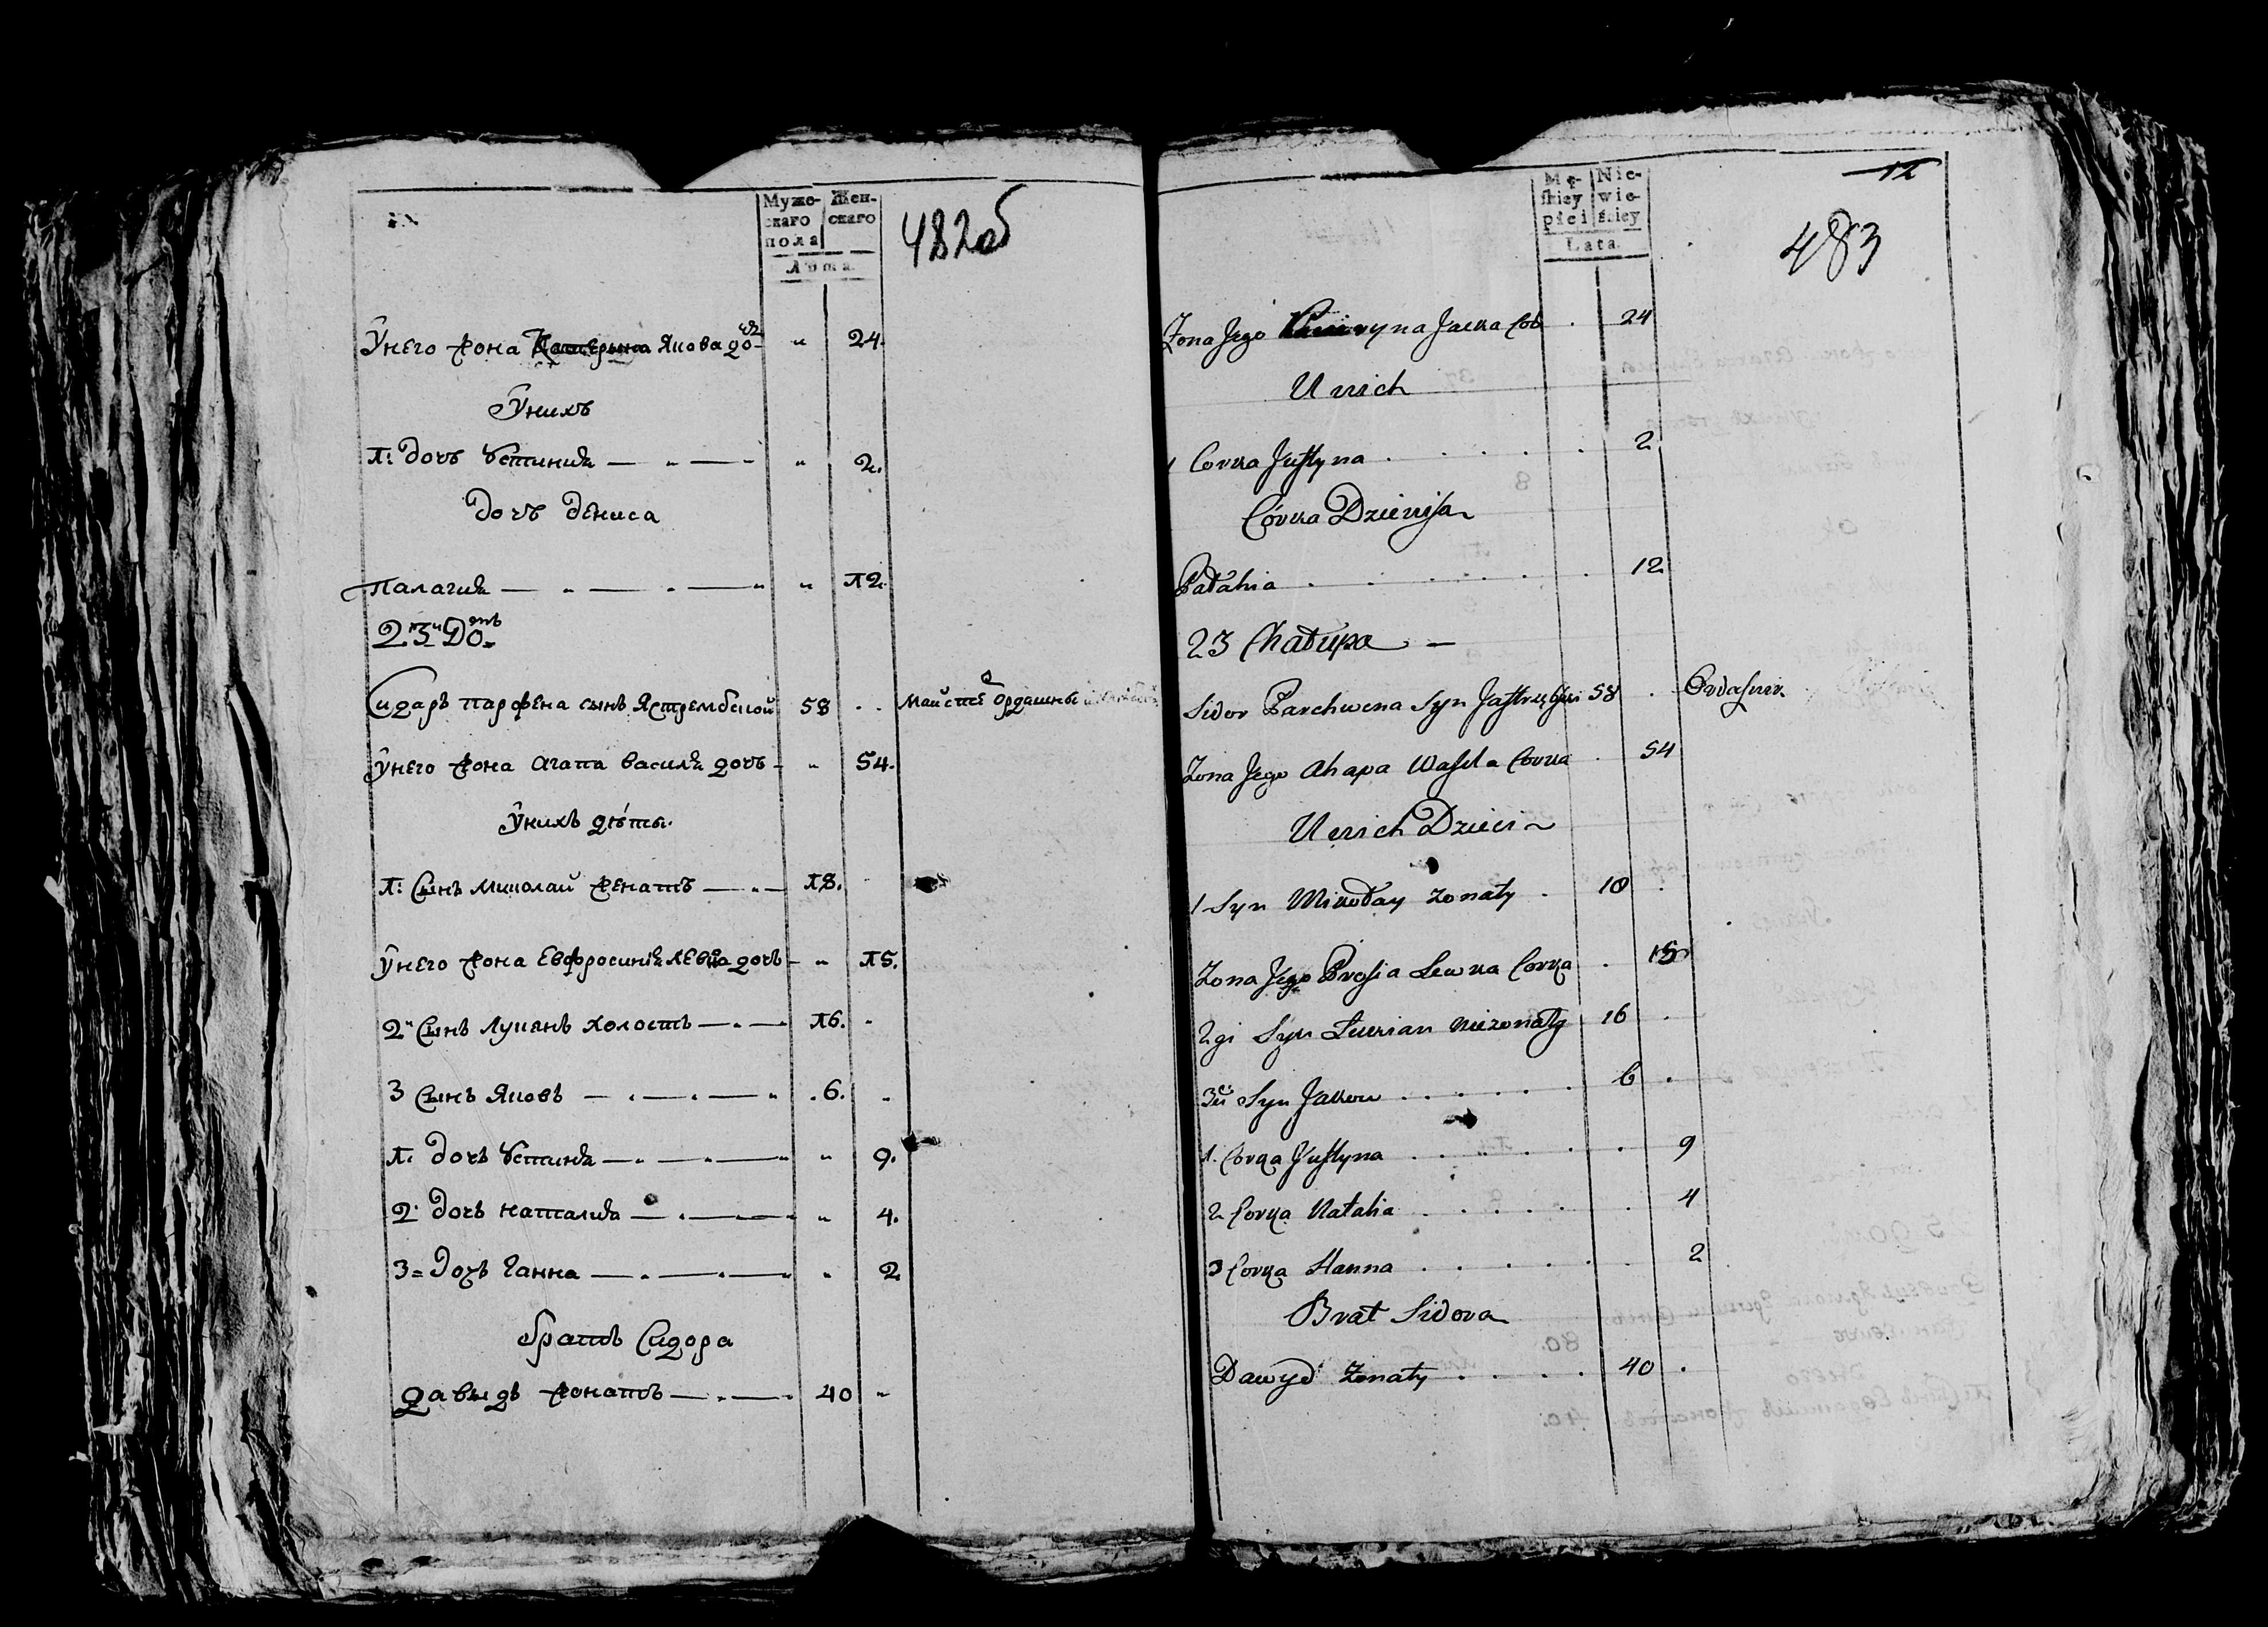 Муже-
скаго
пола
Жен-
скаго
Лѣта
482об
Унего жона Катерына Якова дочь „ 24.
Унихъ
1: дочь Устиния „ 2.
дочь дениса
палагия „ 12
23й Домъ
Сидаръ парфена сынъ Ястрембской 58 Майстѣ Ордашны
Унего жона агапа василя дочь „ 54.
Унихъ дѣты.
1: Сынъ миколай женатъ 18.
Унего жона Евфросиния Левка дочь „ 15.
2й Сынъ Лукянъ холостъ 16.
3 Сынъ Яковъ 6.
1. дочь Устиния „ 9.
2. дочь наталия „ 4.
3 дочь Ганна „ 2
братъ Сидора
давыдъ жонатъ 40 „
Mę-
skiey
płci
Nie-
wie-
skiey
Lata.
12
483
Zona Jego Jacka Cór 24
U nich
1 Corka Justyna 2
Córka Dzienisa
Pałahia 12
23 Chałupa
Sidor Parchwena Syn Jastrzębski 58
Zona Jego Ahapa Wasila Corka 54
U nich Dzieci
1 Syn Mikołay zonaty 18
Zona Jego Prosia Lewka Corka 15
2gi Syn Łukian niezonaty 16
3ci Syn Jakow 6
1. Corka Justyna 9
2 Corka Natalia 4
3 Corka Hanna 2
Brat Sidora
Dawyd Zonaty 40